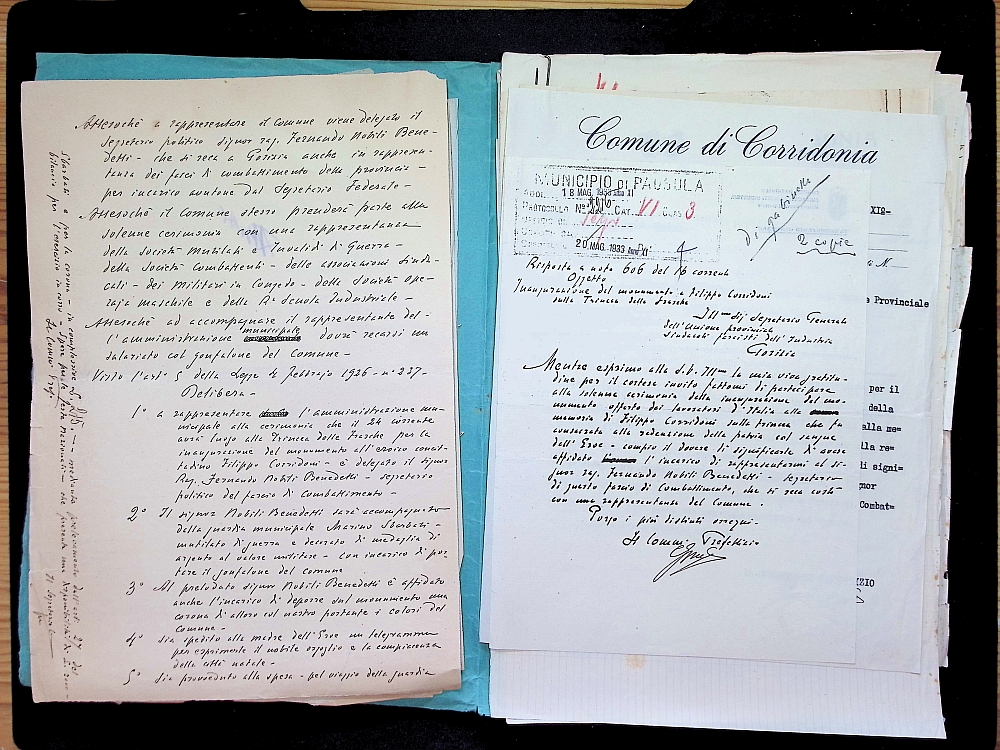 Attesochè a rappresentare il comune viene delegato il
Segretario politico signor rag. Fernando Nobili Bene-
detti - che si reca a Gorizia anche in rappresen-
tanza dei fasci di combattimento della provincia -
per incarico avutone dal Segretario Federale -
Attesochè il comune stesso prenderà parte alla
solenne cerimonia con una rappresentanza
della Società Mutilati e Invalidi di Guerra -
della Società Combattenti - delle associazioni Sinda-
cali - dei Militari in Congedo - della Società Ope-
raja maschile e della Ra Scuola Industriale -
Attesochè ad accompagnare il rappresentante del-
l'amministrazione municipale dovrà recarsi un
salariato col gonfalone del Comune -
Visto l'art. 5 della Legge 4 febbrajo 1926 - n° 237 -
Delibera -
1° a rappresentare l'amministrazione mu-
nicipale alla cerimonia che il 24 corrente
avrà luogo alla Trincea delle Frasche per la
inaugurazione del monumento all'eroico concit-
tadino Filippo Corridoni - è delegato il signor
Rag. Fernando Nobili Benedetti - segretario
politico del fascio di Combattimento -
2° Il signor Nobili Benedetti sarà accompagnato
dalla guardia municipale Marino Sbarbati -
mutilato di guerra e decorato di medaglia di
argento al valore militare - con incarico di por
tare il gonfalone del comune
3° Al prelodato signor Nobili Benedetti è affidato
anche l'incarico di deporre sul monumento una
corona di alloro col nastro portante i colori del
Comune -
4° Sia spedito alla madre dell'Eroe un telegramma
per esprimerle il nobile orgoglio e la compiacenza
della città natale -
5° Sia provveduto alla spesa - pel viaggio della guardia
Sbarbati e per la corona - in complessive L.
mediante prelevamento dall'art. 27 del
bilancio per l'esercizio in corso - spese per le feste Nazionali - che presenta una disponibilità di L.
Il Commis. Pref.
Il Segretario
Comune di Corridonia
MUNICIPIO DI PAUSULA
ADDI 18 MAG. 1933 Anno XI
PROTOCOLLO N° CAT. VI CLAS 3
20 MAG. 1933 Anno XI
Di gabinetto
2 copie
Risposta a nota 606 del 16 corrente
Oggetto
Inaugurazione del monumento a Filippo Corridoni
sulla Trincea delle Frasche
Ill.mo Sig Segretario Generale
dell'Unione provinciale
Sindacati fascisti dell'Industria
Gorizia
Mentre esprimo alla S.V. Ill.ma la mia viva gratitu-
dine per il cortese invito fattomi di partecipare
alla solenne cerimonia della inaugurazione del mo-
numento offerto dai lavoratori d'Italia alla
memoria di Filippo Corridoni sulla trincea che fu
consacrata alla redenzione della patria col sangue
dell'Eroe - compio il dovere di significarle di avere
affidato l'incarico di rappresentarmi al si-
gnor rag. Fernando Nobili Benedetti - segretario
di questo fascio di Combattimento, che si reca costà
con una rappresentanza del Comune.
Porgo i più distinti ossequi.
Il Commis. Prefettizio
XIº-
N.
e Provinciale
per il
della
alla me=
lla re=
di signi=
gnor
Combat=
IZIO